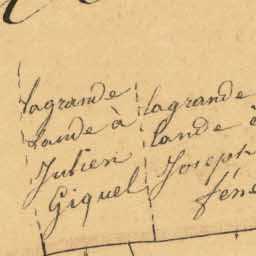 lagrande
lande à
Julien
Giquel
lagrande
lande
Joseph